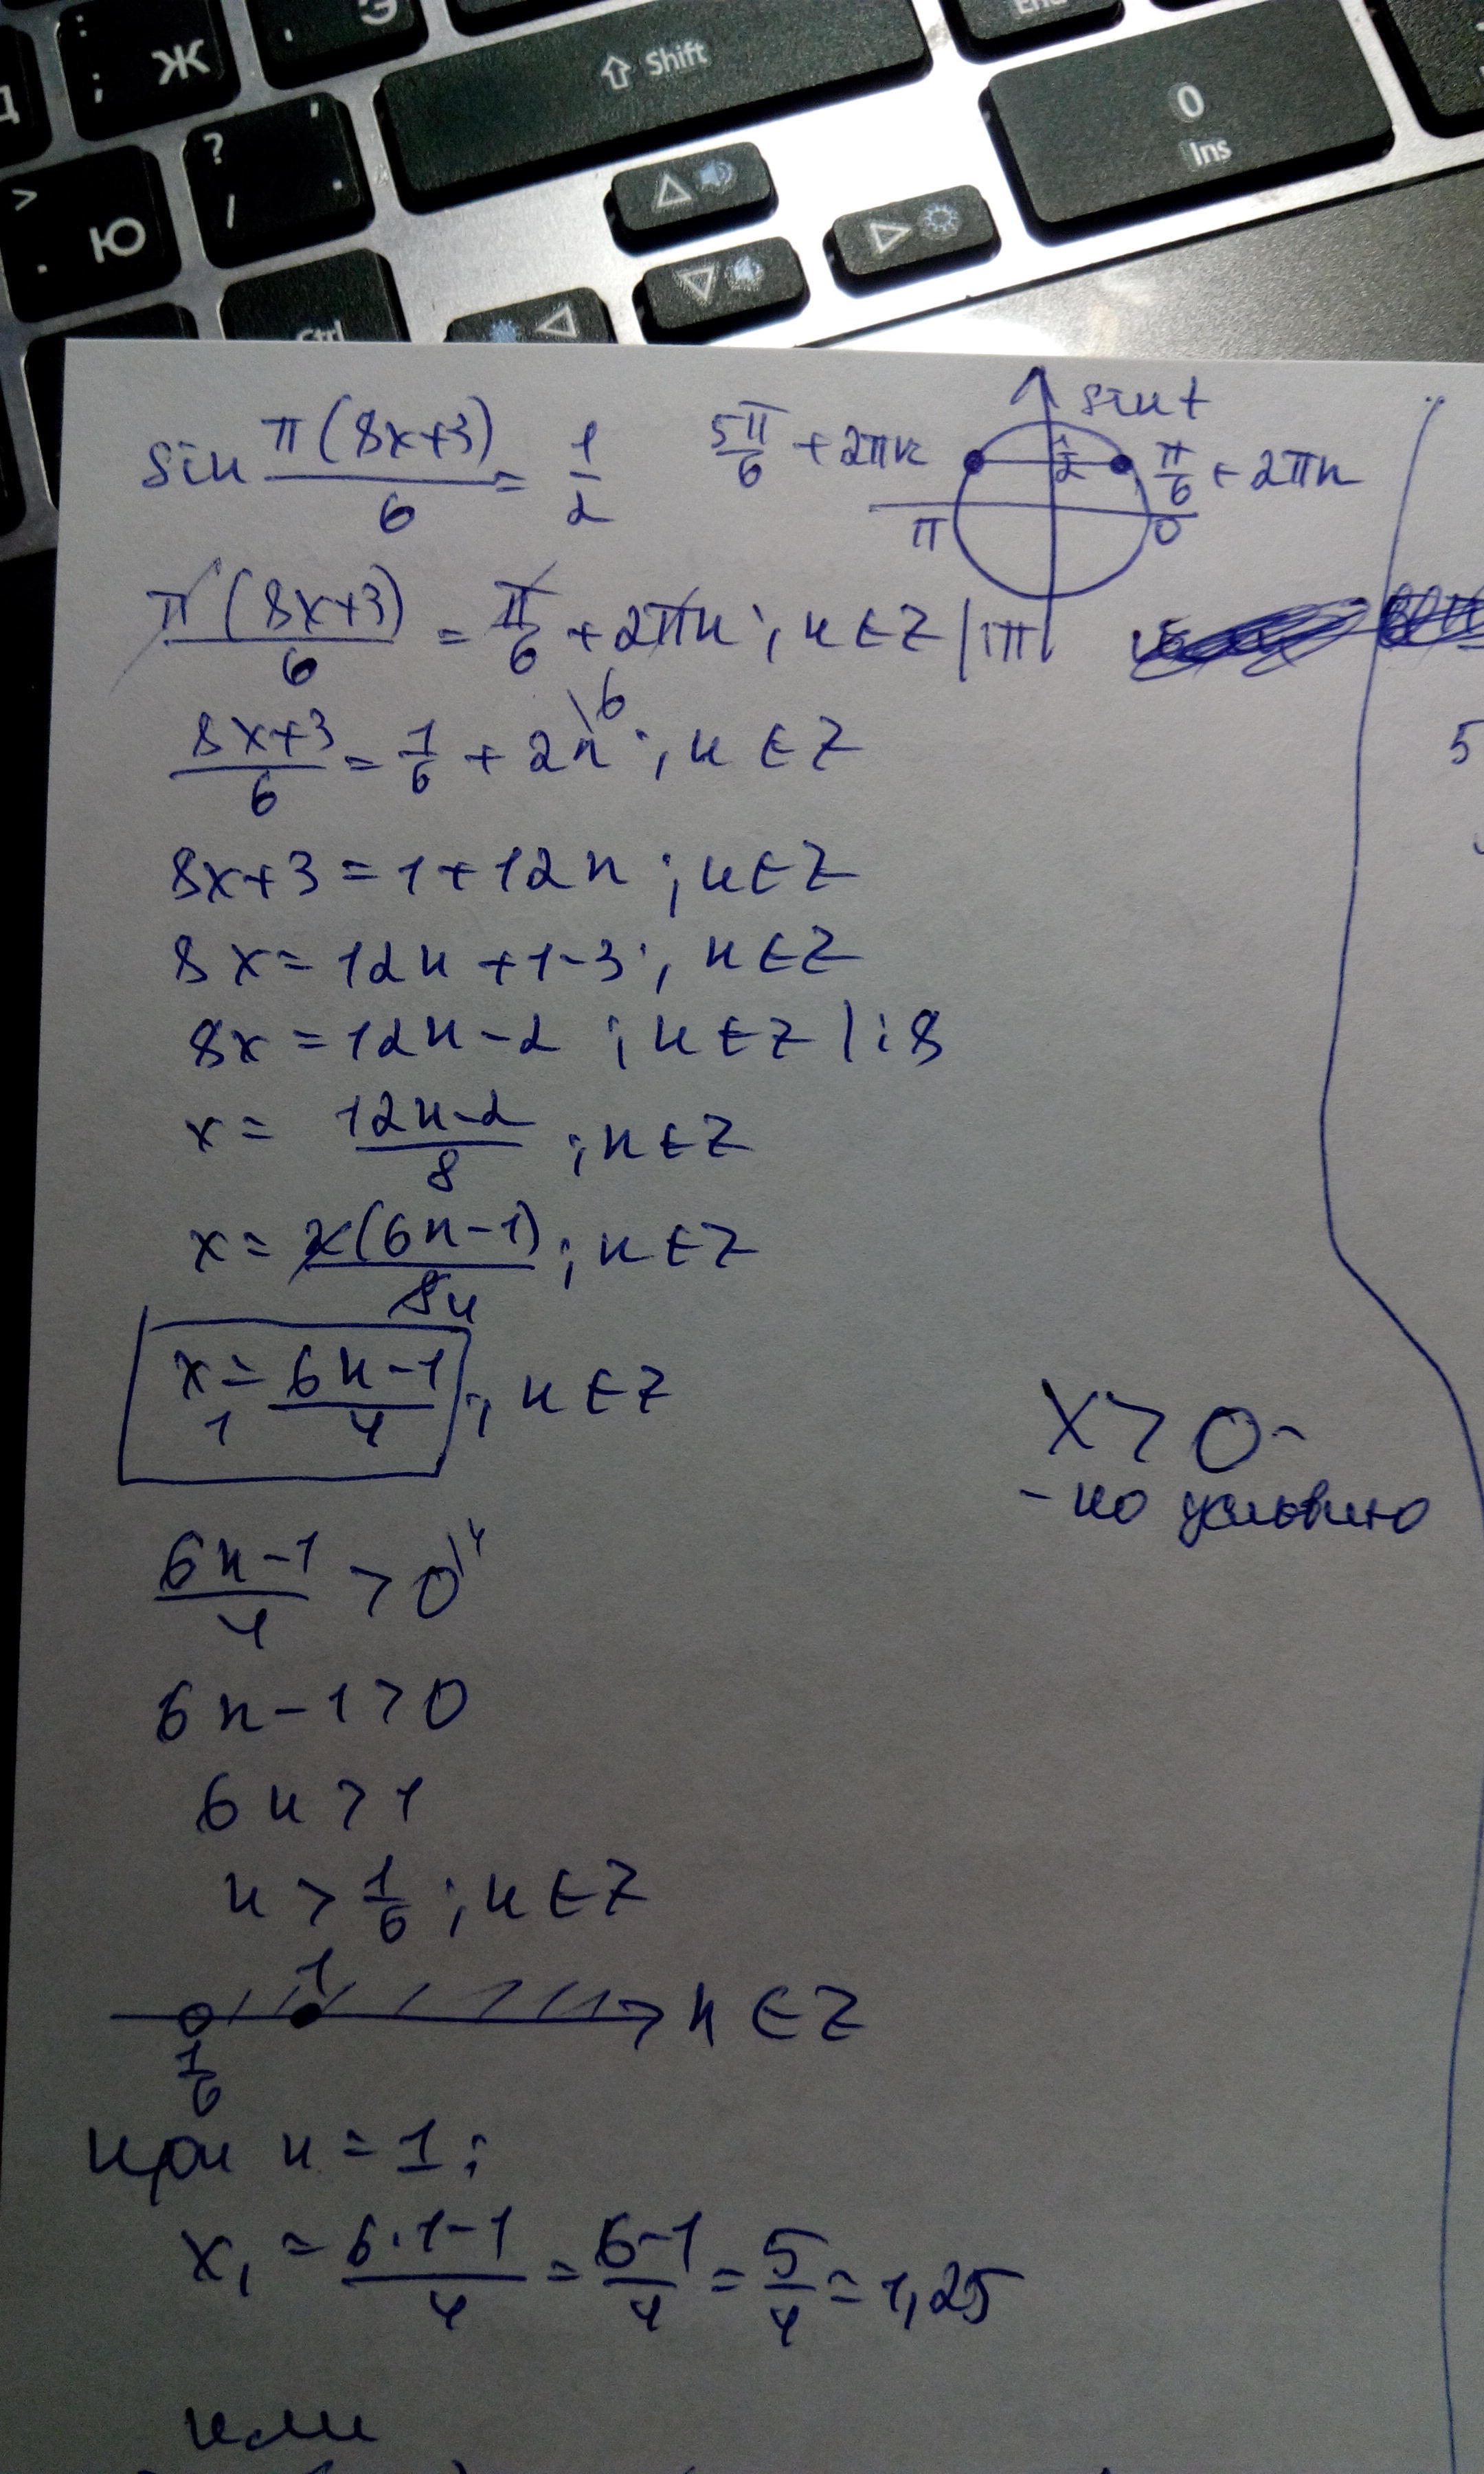 Э
: ; Ж
⇧ Shift
End
0
Ins
? , / .
> . Ю
△
▷
▽
◁
Ctrl
sin π(8x+3)/6 = 1/2
5π/6 + 2πn
sin t
1/2
π/6 + 2πn
π
0
π(8x+3)/6 = π/6 + 2πn ; n ∈ Z | : π
(8x+3)/6 = 1/6 + 2n \6 ; n ∈ Z
5
8x+3 = 1+12n ; n ∈ Z
8x = 12n +1-3 ; n ∈ Z
8x = 12n-2 ; n ∈ Z | : 8
x = (12n-2)/8 ; n ∈ Z
x = 2(6n-1)/8 4 ; n ∈ Z
x₁ = (6n-1)/4 ; n ∈ Z
x > 0 -
- по условию
(6n-1)/4 > 0 \4
6n-1>0
6n>1
n > 1/6 ; n ∈ Z
1
1/6
n ∈ Z
при n = 1:
x₁ = (6·1-1)/4 = (6-1)/4 = 5/4 = 1,25
или